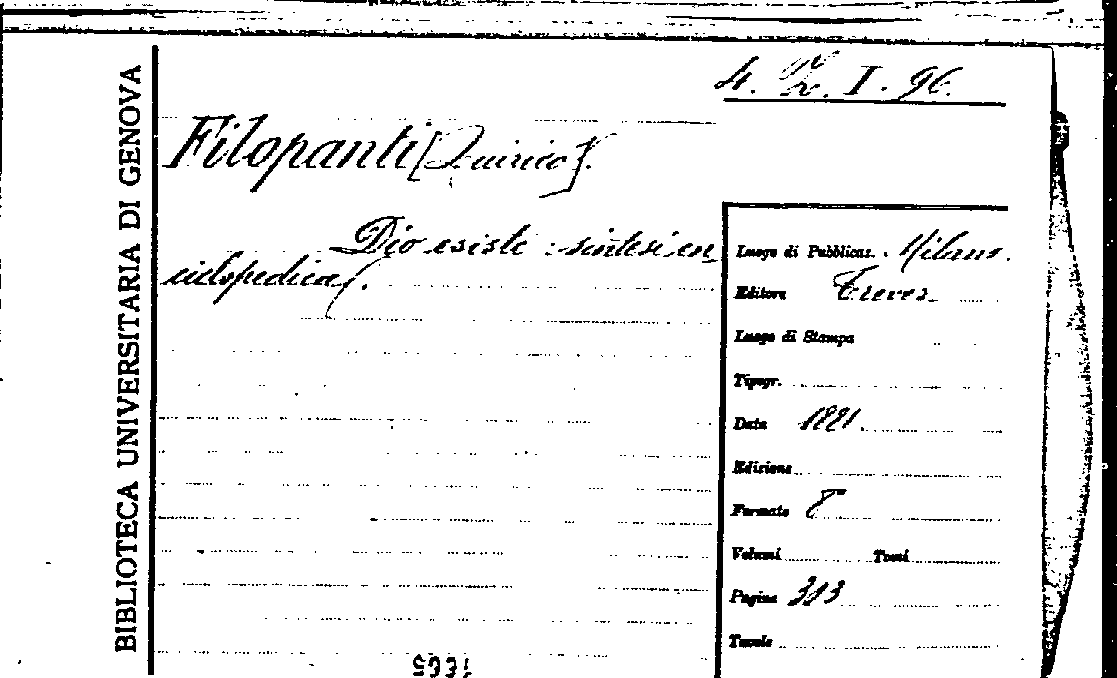 BIBLIOTECA UNIVERSITARIA DI GENOVA
4. Z. I. 96.
Filopanti [Quirico].
Dio esiste : sintesi en
ciclopedica.
Luogo di Pubblicaz. Milano.
Editore Treves
Luogo di Stampa
Tipogr.
Data 1881.
Edizione
Formato 8°
Volumi Tomi
Pagine 313
Tavole